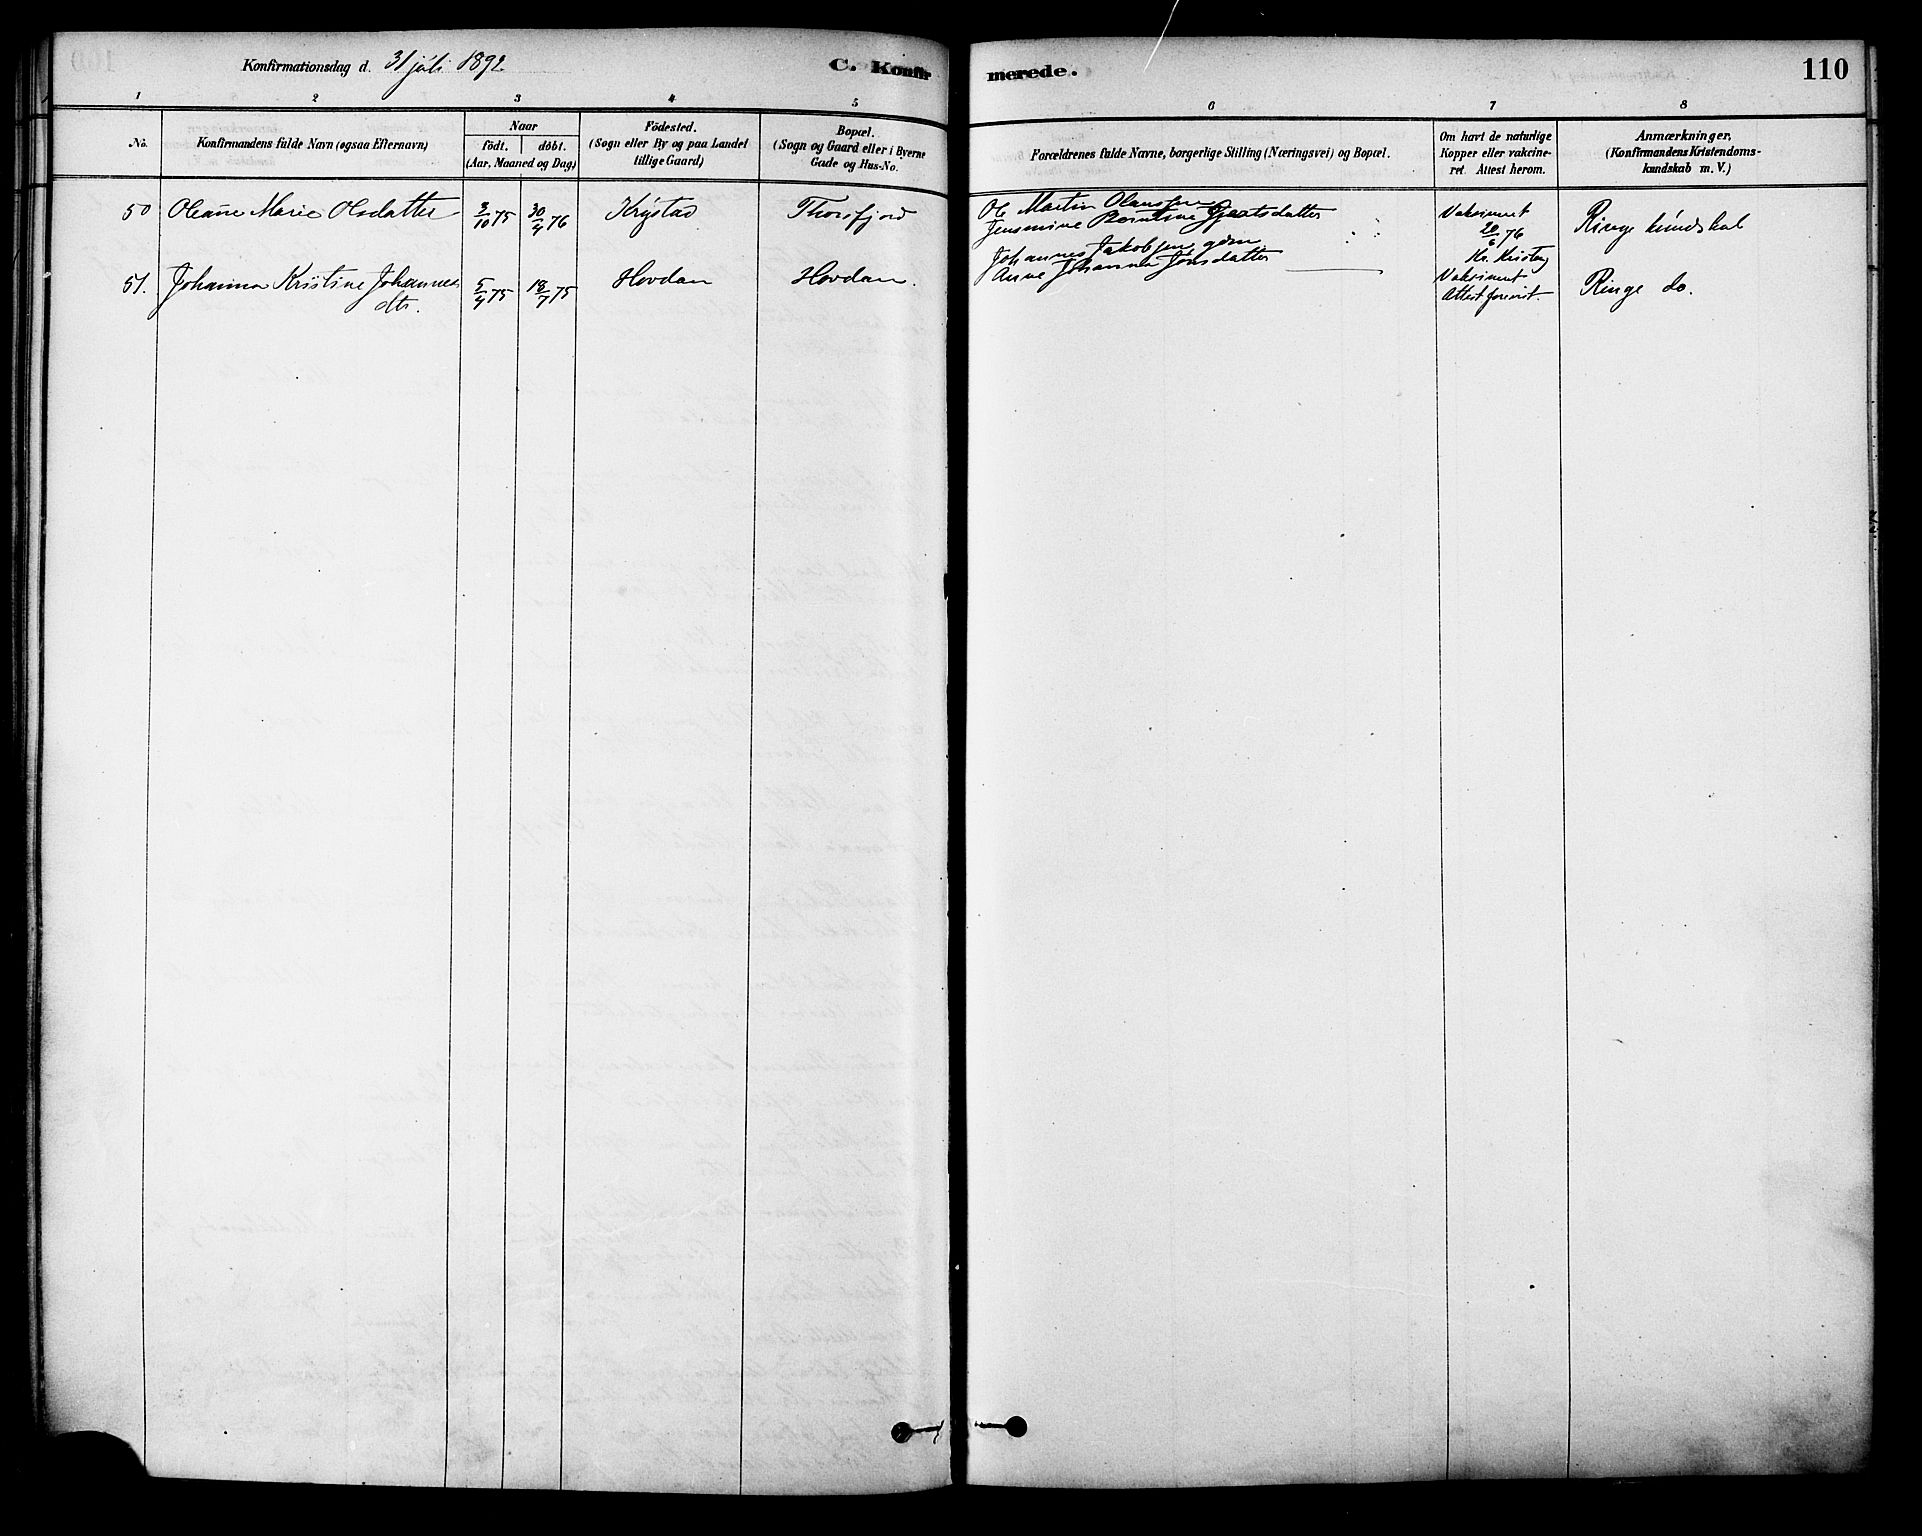 Konfirmationsdag d. 31 juli 1892
C. Konfirmerede.
110
1 2 3 4 5 6 7 8
No.
Konfirmandens fulde Navn (ogsaa Efternavn)
Naar
født. døbt.
(Aar, Maaned og Dag)
Fødested.
(Sogn eller By og paa Landet
tillige Gaard)
Bopæl.
(Sogn og Gaard eller i Byerne
Gade og Hus-No.
Forældrenes fulde Navne, borgerlige Stilling (Næringsvei) og Bopæl.
Om havt de naturlige
Kopper eller vakcine-
ret. Attest herom.
Anmærkninger,
(Konfirmandens Kristendoms-
kundskab m. V.)
50 Oleane Marie Olsdatter 3/10 75 30/4 76 Krystad Thorsfjord
Ole Martin Olaussen
Jensmine Berntine
Vaksineret
20/6 76
Kr.
Ringe kundskab
51. Johanna Kristine Johannes
dtr.
5/4 75 18/7 75 Hovdan Hovdan.
Johannes Jakobsen gdm.
Anne Johanna Jonsdatter
Vaksineret
Attest forevist.
Ringe do.